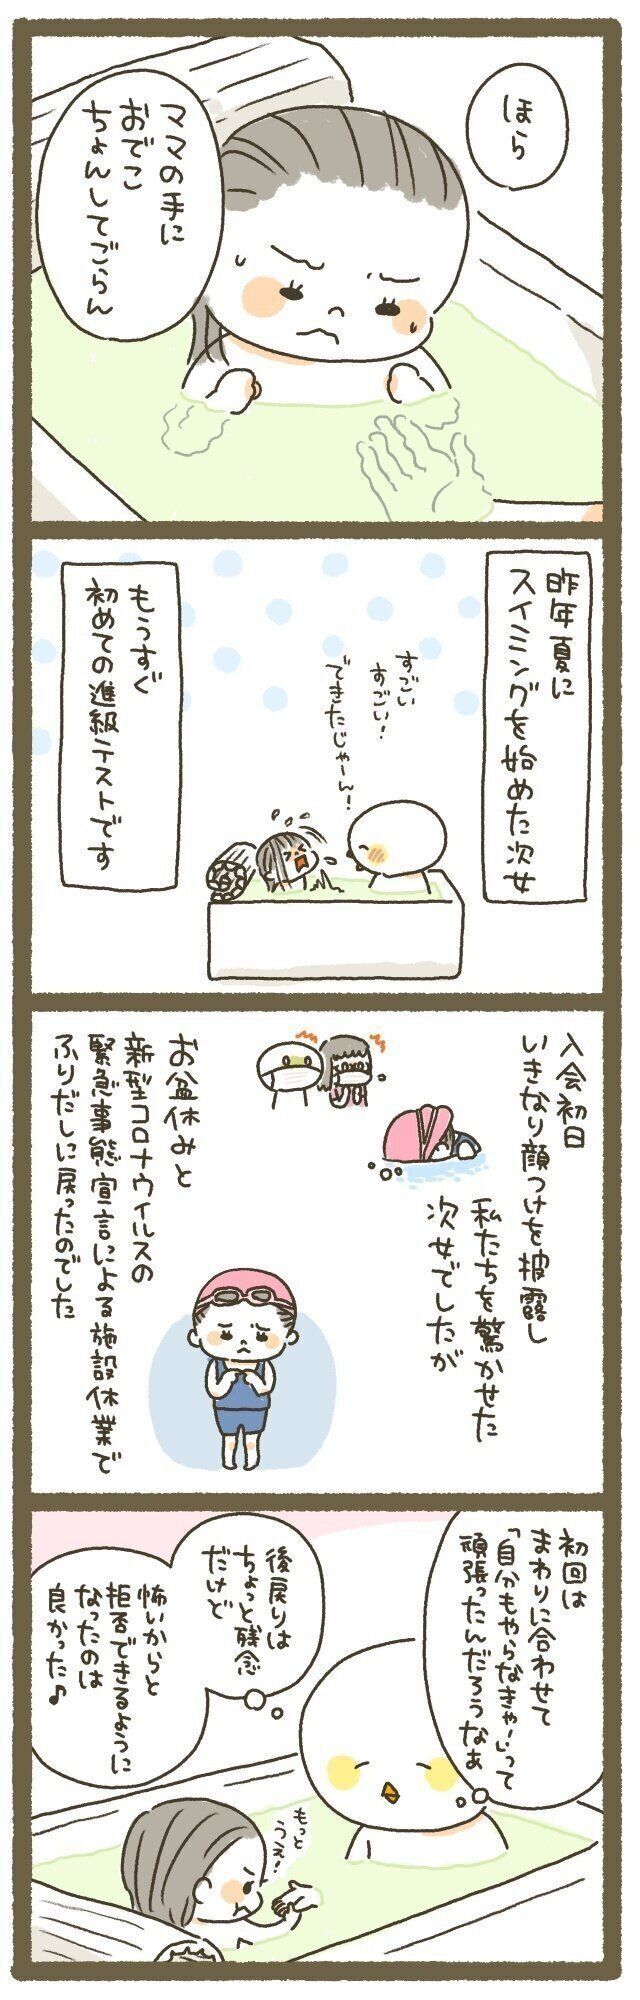 ほら
ママの手に
おでこ
ちょんしてごらん
昨年夏に
スイミングを始めた次女
すごい
すごい!
できたじゃーん!
もうすぐ
初めての進級テストです
入会初日
いきなり顔つけを披露し
私たちを驚かせた
次女でしたが
お盆休みと
新型コロナウイルスの
緊急事態宣言による施設休業で
ふりだしに戻ったのでした
初回は
まわりに合わせて
「自分もやらなきゃ!」って
頑張ったんだろうなぁ
後戻りは
ちょっと残念
だけど
怖いからと
拒否できるように
なったのは
良かった♪
もっと
うえ!